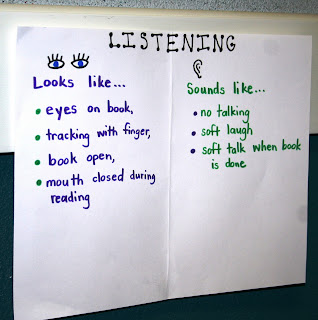 LISTENING
Looks like...
• eyes on book,
• tracking with finger,
• book open,
• mouth closed during
reading
Sounds like...
• no talking
• soft laugh
• soft talk when book
is done